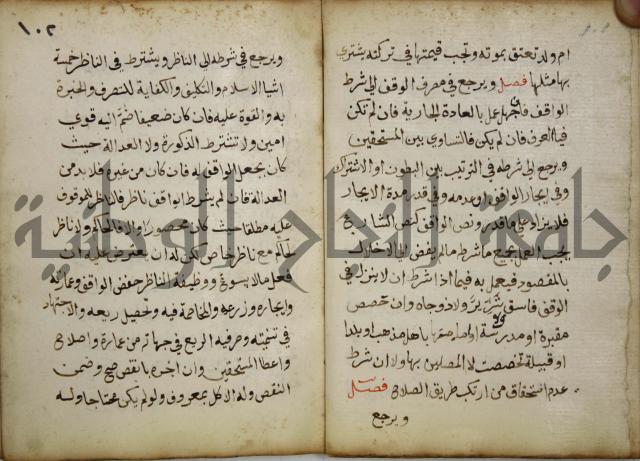 ام ولد تعتق بموته وتجب قيمتها في تركته يشترى
بها مثلها فصل ويرجع في مصرف الوقف الى شرط
الواقف فان جهل عمل بالعادة الجارية فان لم تكن
فبالعرف فان لم يكن فالتساوي بين المستحقين
ويرجع الى شرطه في الترتيب بين البطون او الاشتراك
وفي ايجار الوقف او عدمه وفي قدر مدة الايجار
فلا يزاد على ما قدر ونص الواقف كنص الشارع
يجب العمل بجميع ما شرطه ما لم يفض الى الاخلال
بالمقصود فيعمل به فيما اذا شرط ان لا ينزل في
الوقف فاسق ولا شرير ولا ذو جاه وان خصص
مقبرة او مدرسة او امامتها باهل مذهب او بلد
او قبيلة تخصصت لا المصلين بها ولا ان شرط
عدم استحقاق من ارتكب طريق الصلاح فصل
ويرجع
١٠٢
ويرجع في شرطه الى الناظر ويشترط في الناظر خمسة
اشيا الاسلام والتكليف والكفاية للتصرف والخبرة
به والقوة عليه فان كان ضعيفا ضم اليه قوي
امين ولا تشترط الذكورة ولا العدالة حيث
كان بجعل الواقف له فان كان من غيره فلا بد من
العدالة فان لم يشرط الواقف ناظر فالناظر للموقوف
عليه مطلقا حيث كان محصورا والا فالحاكم ولا ناظر
لحاكم مع ناظر خاص لكن له ان يعترض عليه ان
فعل ما لا يسوغ ووظيفة الناظر حفظ الوقف وعمارته
وايجاره وزرعه والمخاصمة فيه وتحصيل ريعه والاجتهاد
في تنميته وصرفه الريع في جهاته من عمارة واصلاح
واعطا المستحقين وان اجره بانقص صح وضمن
النقص وله الاكل بمعروف ولو لم يكن محتاجا وله
جامعة النجاح الوطنية